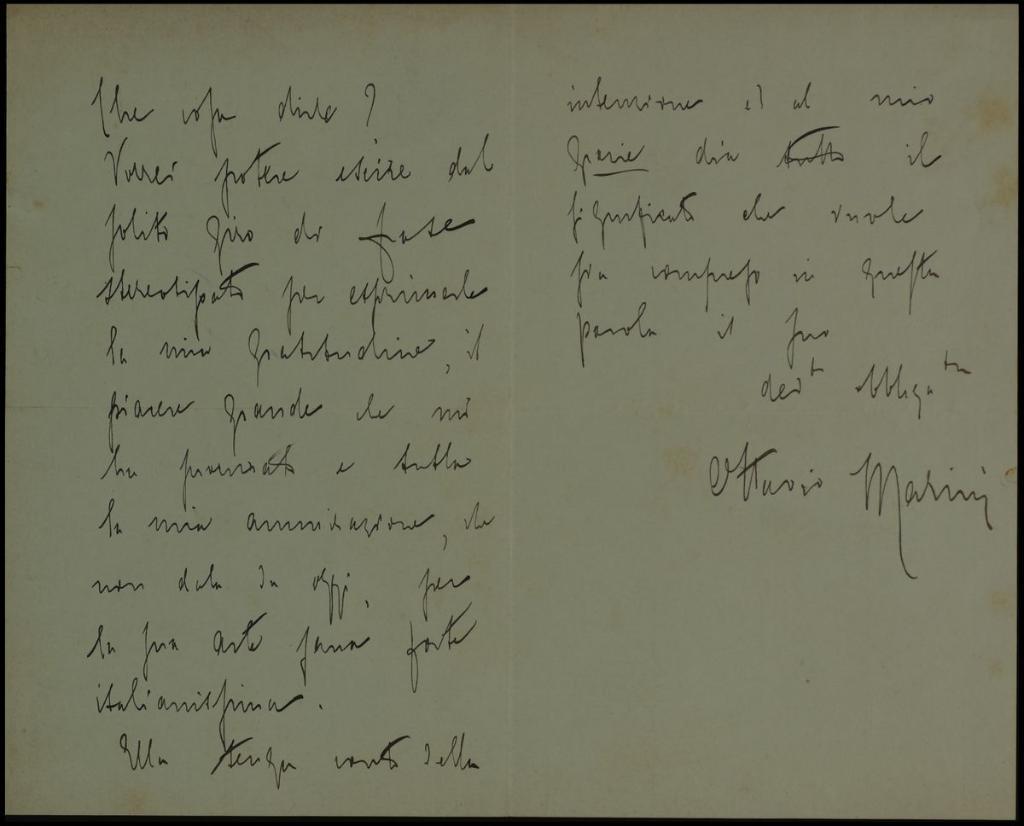 Che cosa dirle?
Vorrei potere escire dal
solito giro di frase
stereotipato per esprimerle
la mia gratitudine, il
piacere grande che mi
ha procurato e tutta
la mia ammirazione, che
non data da oggi, per
la sua arte sana forte
italianissima.
Ella tenga conto della
intenzione ed al mio
grazie dia tutto il
significato che vuole
sia compreso in questa
parola il suo
devto obbligatmo
Ottavio Marini